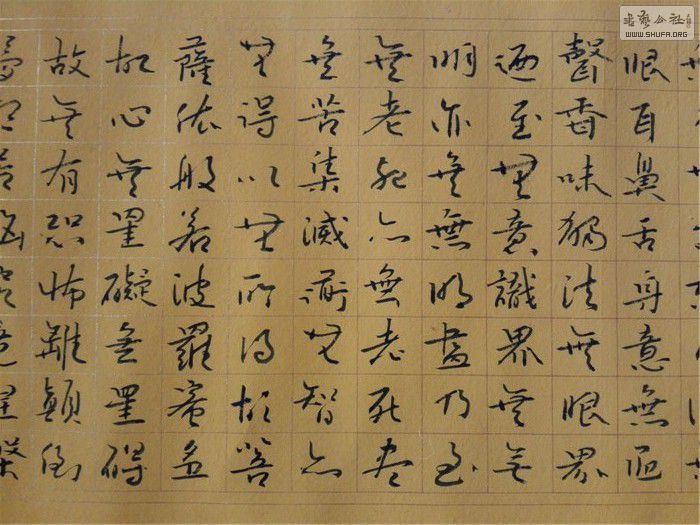 眼耳鼻舌身意無色
聲香味觸法無眼界
迺至無意識界無无
明亦無無明盡乃至
無老死亦無老死盡
無苦集滅衜無智亦
無得以無所得故菩
薩依般若波羅蜜多
故心無罣礙無罣碍
故無有恐怖離顛倒
書藝公社
WWW.SHUFA.ORG